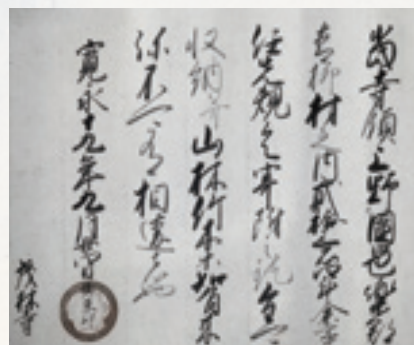 當寺領上野國邑樂郡
青柳村之内貳拾石余事
任先規令寄附之訖全可
収納并山林竹木等如有来
弥不可有相違者也
寛永十九年九月日
茂林寺